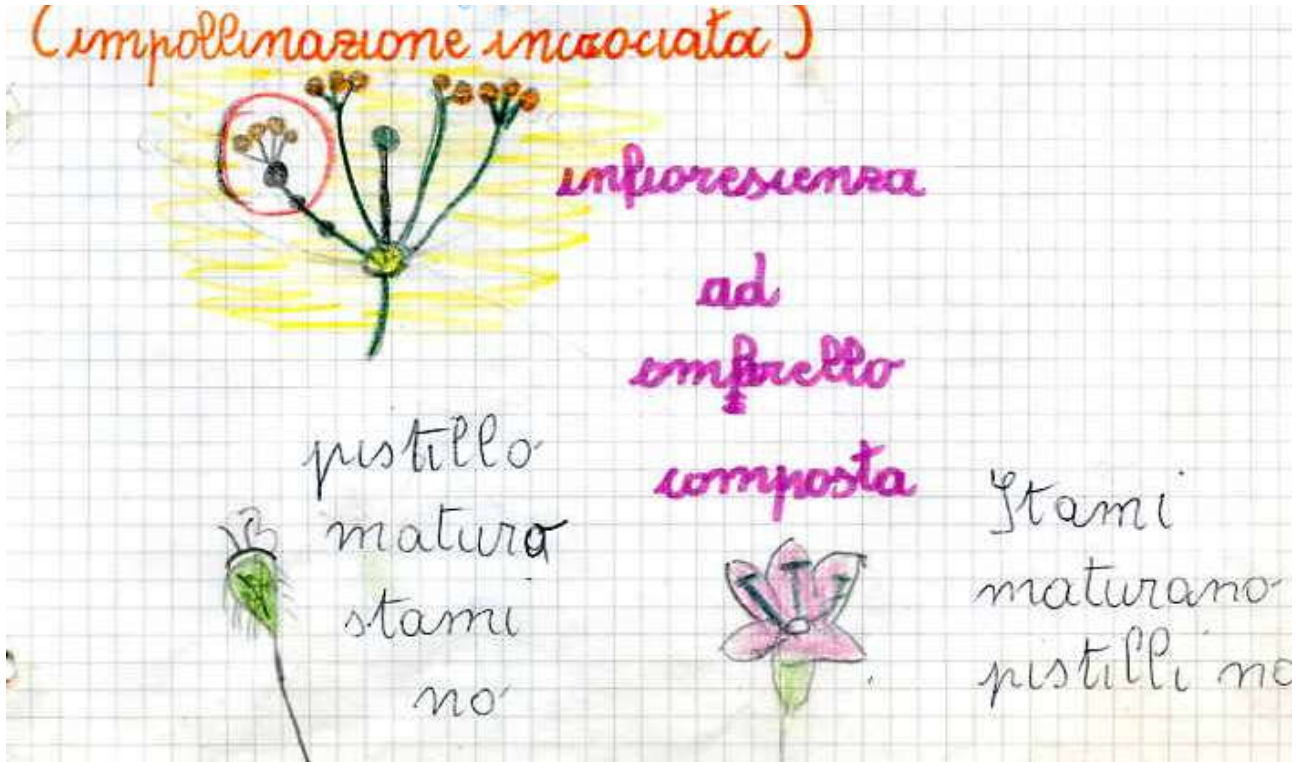 (impollinazione incrociata)
infioresienza
ad
ombrello
composta
pistillo
maturo
stami
no
Stami
maturano
pistilli no